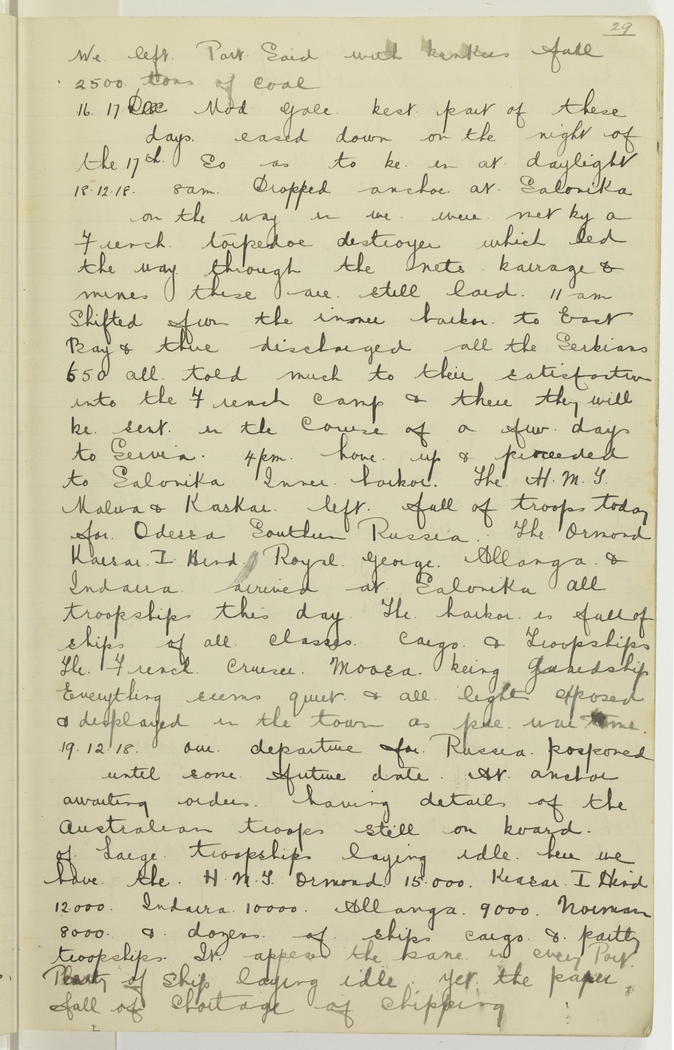 29
We left Port Said with bunkers full
2500 tons of coal
16. 17 Dec Mod gale best part of these
days. eased down on the night of
the 17th So as to be in at daylight
18.12.18. 8am. Dropped anchor at Salonika
on the way in we were met by a
French torpedoe destroyer which led
the way through the nets barrage &
mines these are still laid. 11 am
Shifted from the inner harbor to East
Bay & there discharged all the Serbians
650 all told much to their satisfaction
into the French camp & there they will
be sent in the course of a few days
to Servia. 4pm hove up & proceeded
to Salonika Inner harbor. The H.M.T.
Malwa & Karkar left full of troops today
for Odessa Southern Russia. The Ormond
Kaisar.I.Hind Royal George. Allanga &
Indarra arrived at Salonika all
troopships this day. The harbor is full of
ships of all classes. Cargo. & Troopships
The French Cruiser Moosa being Guardship
Everything seems quiet & all lights exposed
& displayed in the town as pre war time.
19.12.18. our departure for Russia posponed
until some future date. At anchor
awaiting orders. having details of the
Australian troops still on board.
of Large troopships laying idle here we
have the H.M.T. Ormond 15.000. Kiasar.I Hind
12000. Indarra 10000. Allanga. 9000. Norman
8000. & dozens of ships cargo & partly
troopships. It appears the same in every Port.
Plenty of Ship laying idle yet the paper
full of Shortage of Shipping